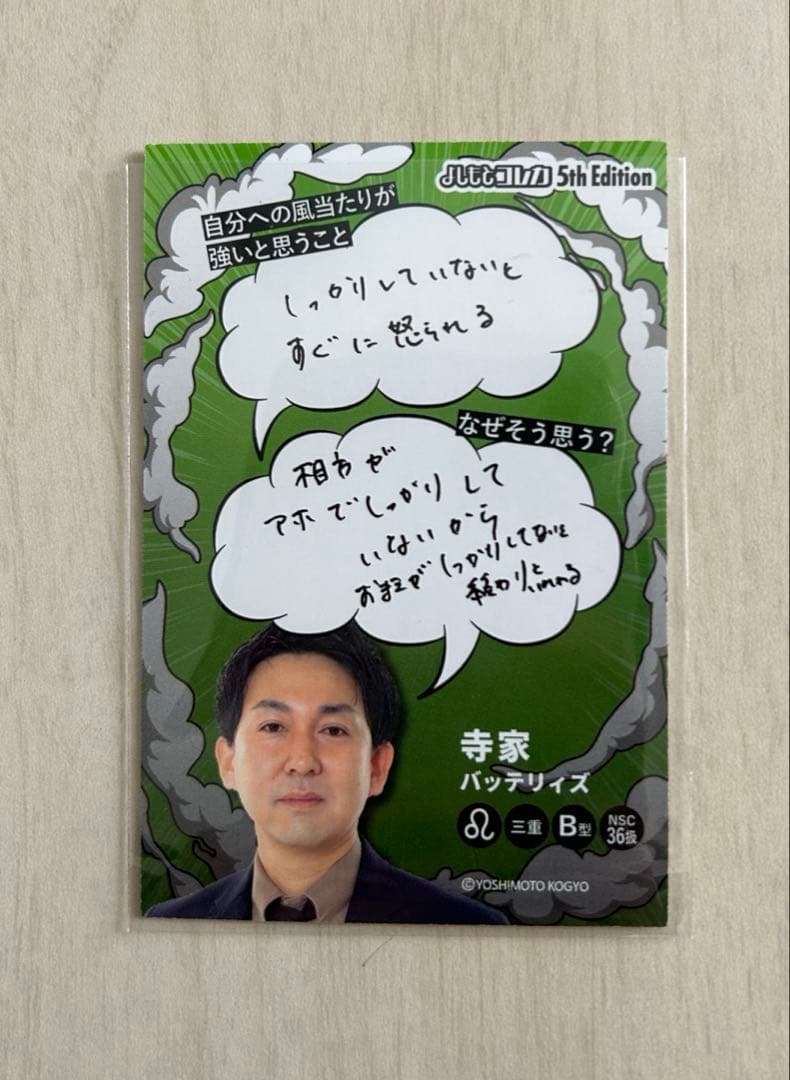 よしもとコレカ 5th Edition
自分への風当たりが
強いと思うこと
しっかりしていないと
すぐに怒られる
なぜそう思う?
相方が
アホでしっかりして
いないから
お前がしっかりしてないと
終わりと言われる
寺家
バッテリィズ
♌ 三重 B型 NSC 36扱
©YOSHIMOTO KOGYO